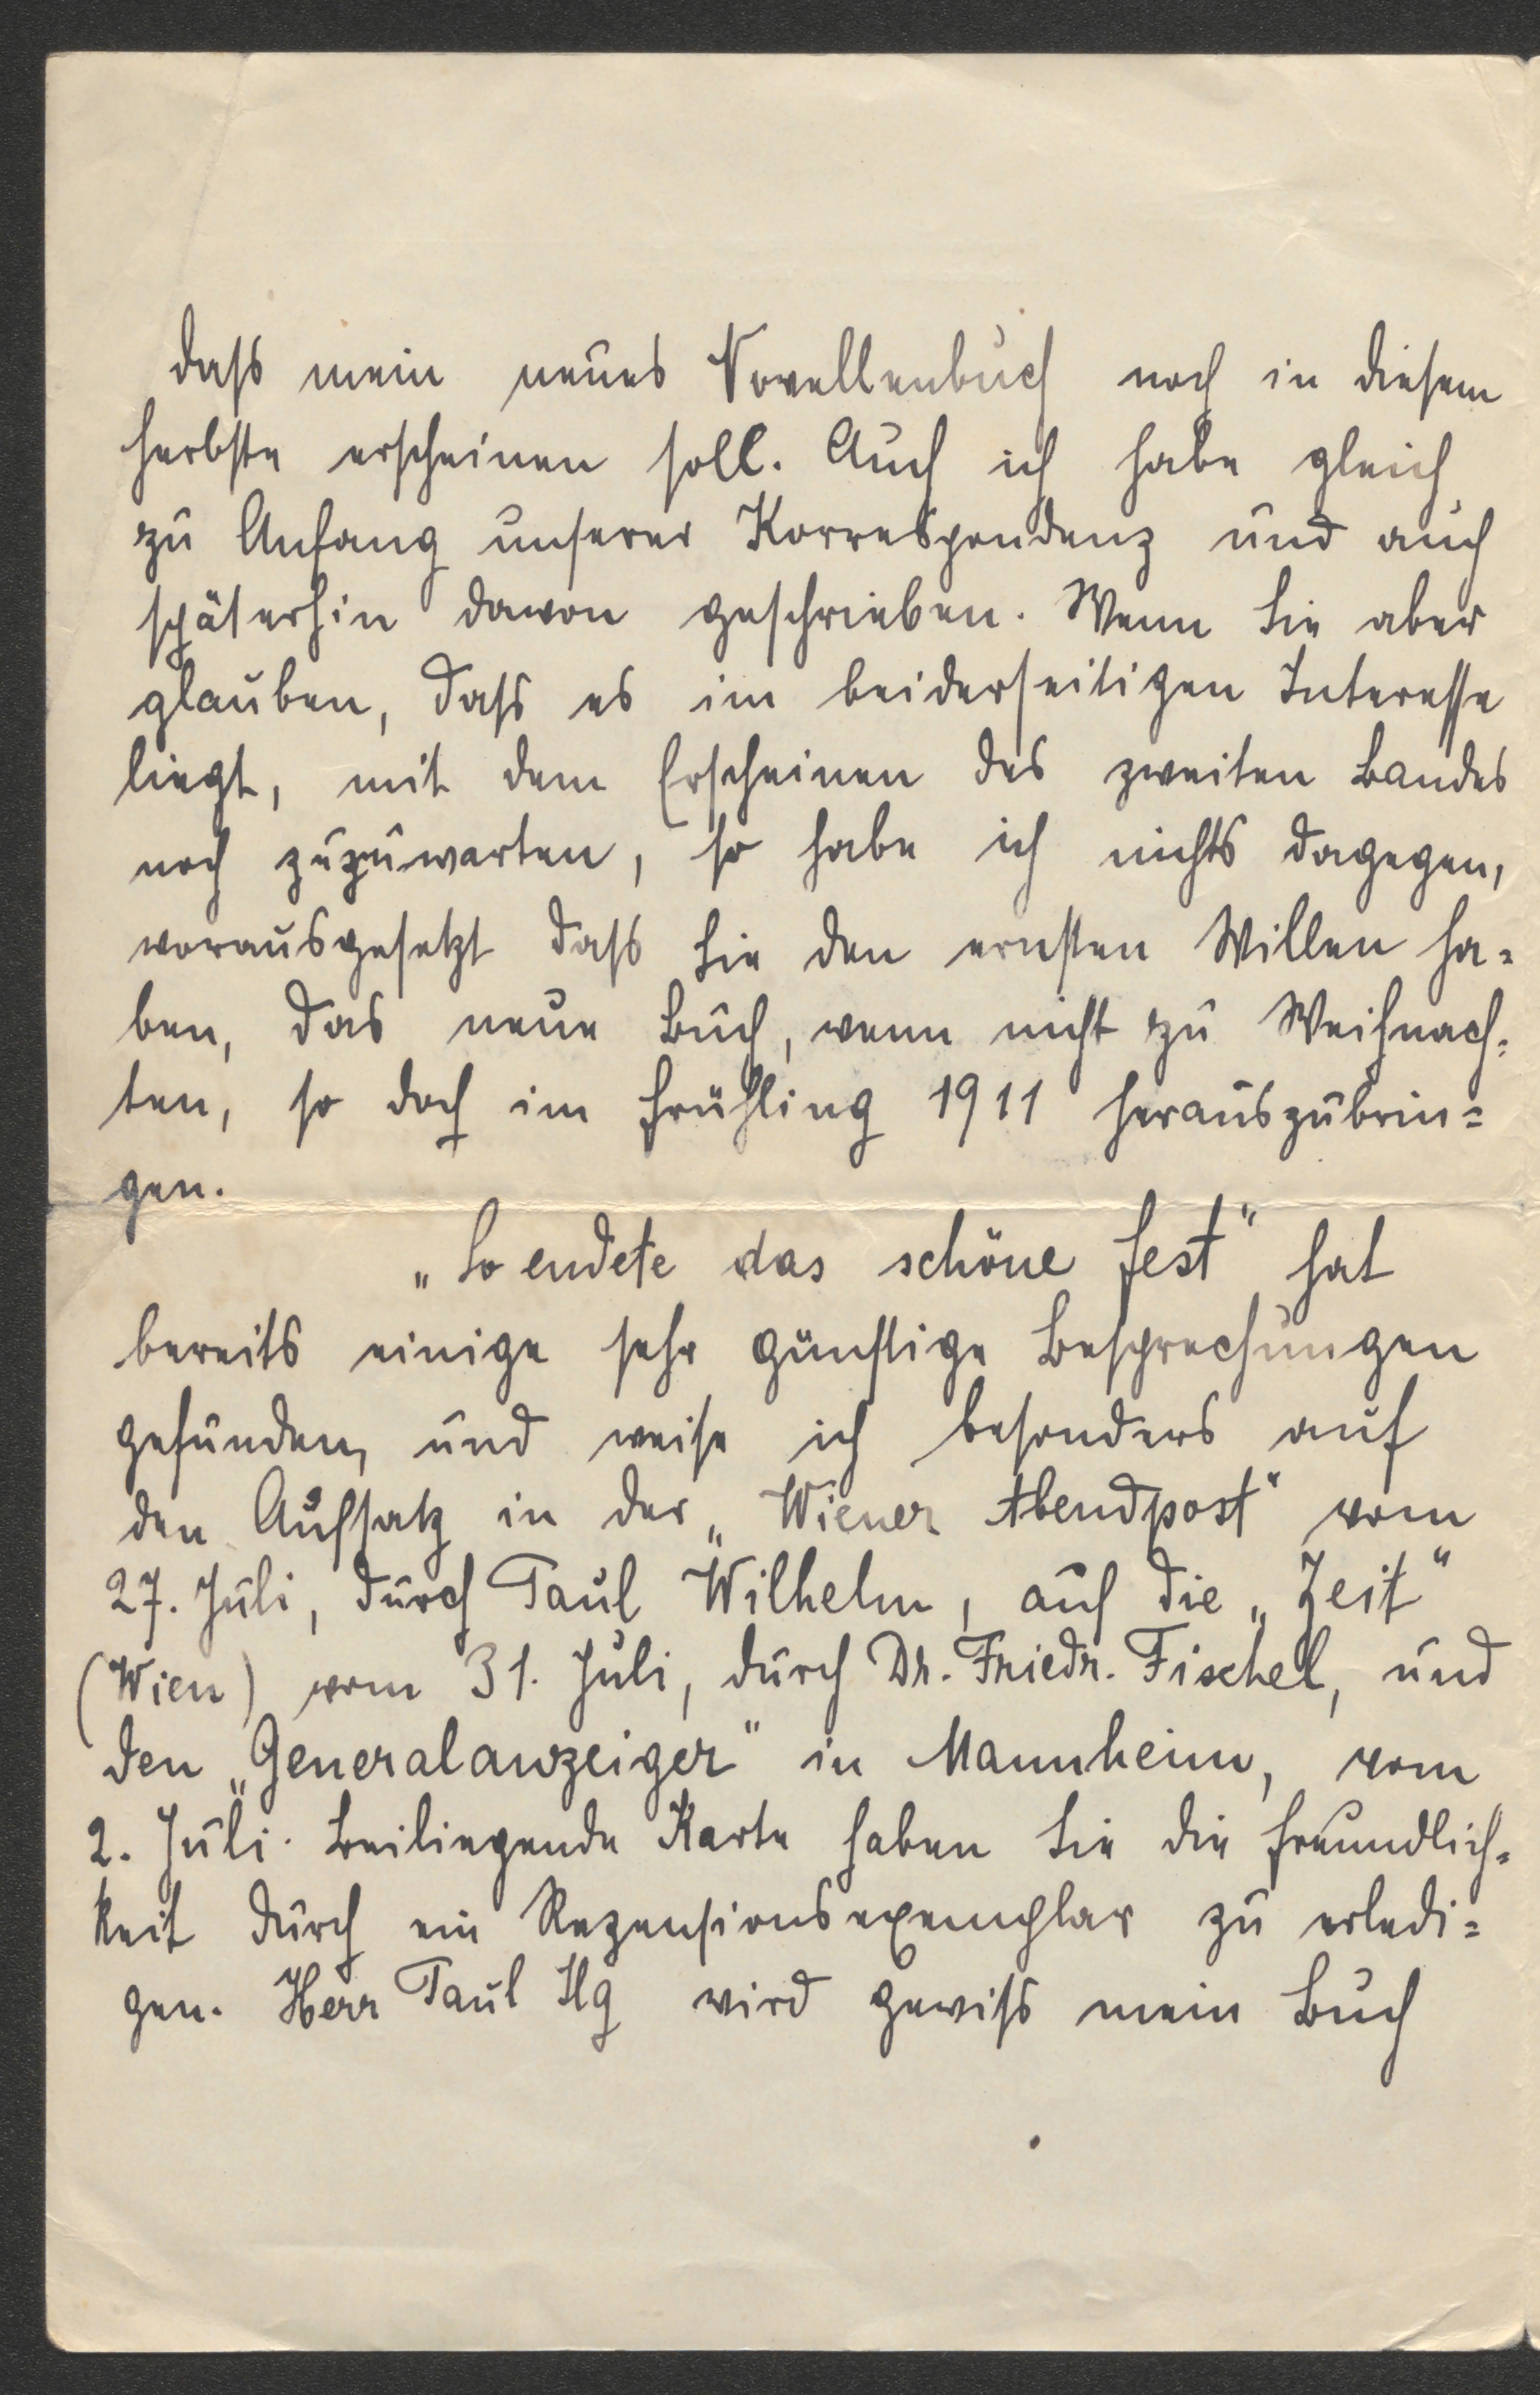 dass mein neues Novellenbuch noch in diesem
Herbste erscheinen soll. Auch ich habe gleich
zu Anfang unserer Korrespondenz und auch
späterhin davon geschrieben. Wenn Sie aber
glauben, dass es im beiderseitigen Interesse
liegt, mit dem Erscheinen des zweiten Bandes
noch zuzuwarten, so habe ich nichts dagegen,
vorausgesetzt dass Sie den ernsten Willen ha=
ben, das neue Buch, wenn nicht zu Weihnach=
ten, so doch im Frühling 1911 herauszubrin=
gen.
„So endete das schöne Fest" hat
bereits einige sehr günstige Besprechungen
gefunden, und weise ich besonders auf
den Aufsatz in der „Wiener Abendpost" vom
27. Juli, durch Paul Wilhelm, auf die „Zeit"
(Wien) vom 31. Juli, durch Dr. Friedr. Fischel, und
den „Generalanzeiger" in Mannheim, vom
2. Juli. Beiliegende Karte haben Sie die Freundlich=
keit durch ein Rezensionsexemplar zu erledi=
gen. Herr Paul Ilg wird gewiss mein Buch